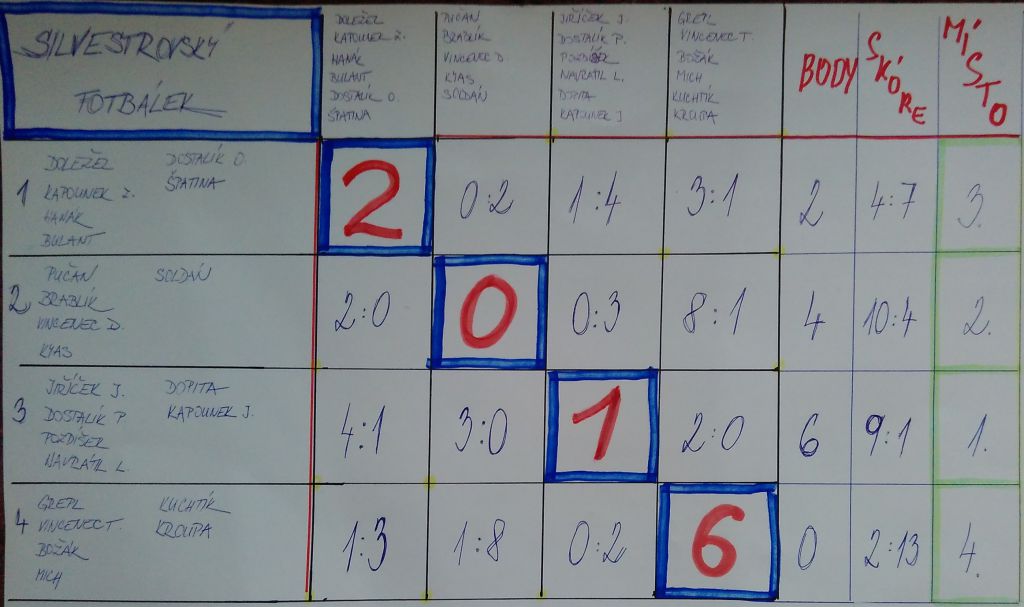 SILVESTROVSKÝ
FOTBÁLEK
DOLEŽEL
KAPOUNEK Z.
HANÁK
BULANT
DOSTALÍK O.
ŠPATINA
PUČAN
BRABLÍK
VINCENEC D.
KYAS
SOLDÁN
JIŘÍČEK J.
DOSTALÍK P.
POZDÍŠEK
NAVRÁTIL L.
DOPITA
KAPOUNEK J
GREPL
VINCENEC T.
BOŽÁK
MICH
KUCHTÍK
KROUPA
BODY
SKÓRE
MÍSTO
1
DOLEŽEL DOSTALÍK O.
KAPOUNEK Z. ŠPATINA
HANÁK
BULANT
2 0:2 1:4 3:1 2 4:7 3.
2
PUČAN SOLDÁN
BRABLÍK
VINCENEC D.
KYAS
2:0 0 0:3 8:1 4 10:4 2.
3
JIŘÍČEK J. DOPITA
DOSTALÍK P. KAPOUNEK J.
POZDÍŠEK
NAVRÁTIL L.
4:1 3:0 1 2:0 6 9:1 1.
4
GREPL KUCHTÍK
VINCENEC T. KROUPA
BOŽÁK
MICH
1:3 1:8 0:2 6 0 2:13 4.